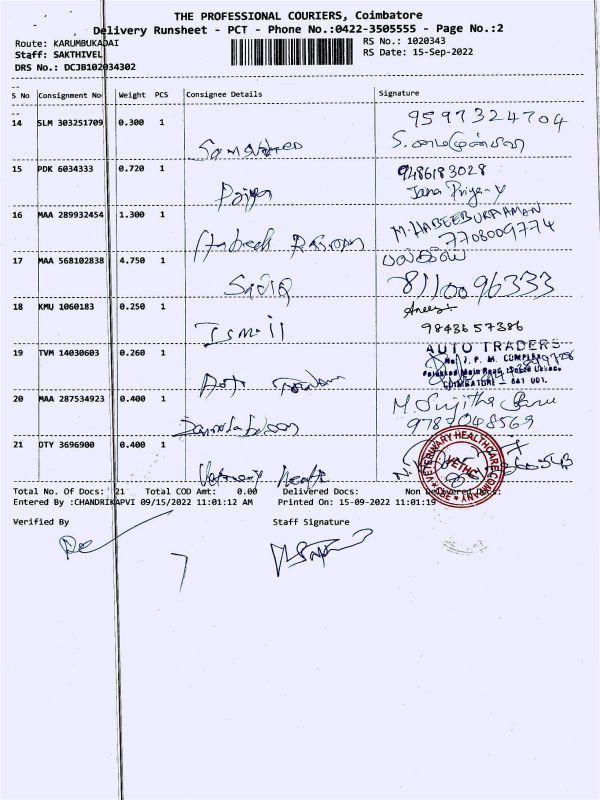 THE PROFESSIONAL COURIERS, Coimbatore
Delivery Runsheet - PCT - Phone No.:0422-3505555 - Page No.:2
Route: KARUMBUKADAI RS No.: 1020343
Staff: SAKTHIVEL RS Date: 15-Sep-2022
DRS No.: DCJB102034302
S No Consignment No Weight PCS Consignee Details Signature
14 SLM 303251709 0.300 1 9597324704
15 PDK 6034333 0.720 1 Priya 9486183028
Jana Priya-y
16 MAA 289932454 1.300 1 Habeeb Rahman M.HABEEBURAHMAN
7708009774
17 MAA 568102838 4.750 1 Sadiq 8110096333
18 KMU 1060183 0.250 1 Ismail Anees
9843657386
19 TVM 14030603 0.260 1 Auto AUTO TRADERS
COIMBATORE - 641 001.
20 MAA 287534923 0.400 1 M. Sujitha
9787048569
21 DTY 3696900 0.400 1 Veterinary Health VETERINARY HEALTHCARE COMPANY
Total No. Of Docs: 21 Total COD Amt: 0.00 Delivered Docs: Non Delivered Docs:
Entered By :CHANDRIKAPVI 09/15/2022 11:01:12 AM Printed On: 15-09-2022 11:01:19
Verified By Staff Signature